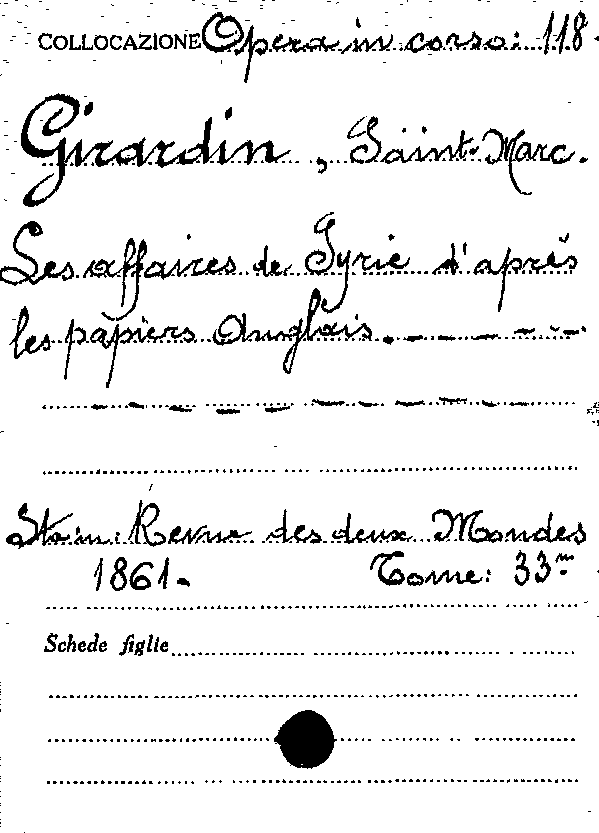 COLLOCAZIONE Opera in corso: 118.
Girardin, Saint-Marc.
Les affaires de Syrie d'après
les papiers Anglais.
Sta in: Revue des deux Mondes
1861. Tome: 33me
Schede figlie